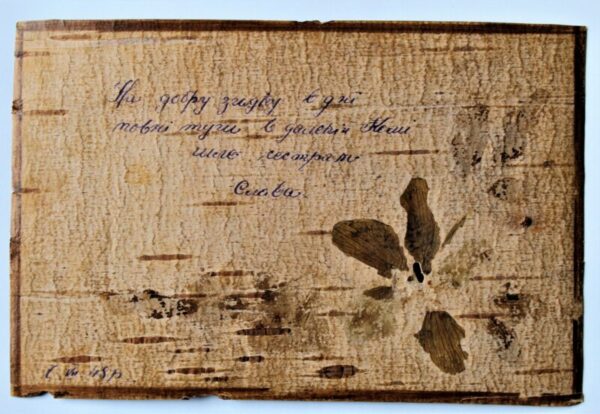 На добру згадку в дні
повні туги в далекій Комі
шле сестрам
Слава.
48 р